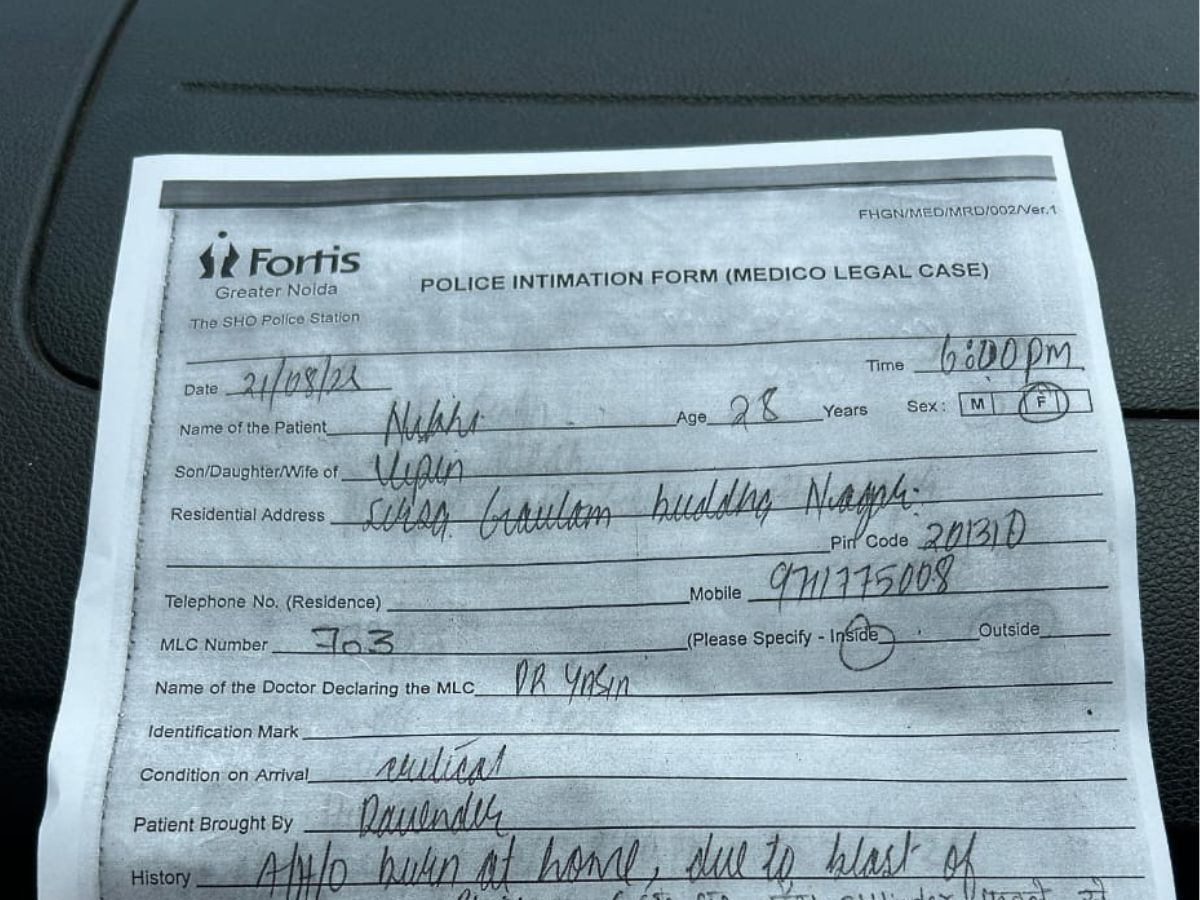 FHGN/MED/MRD/002/Ver.1
Fortis
Greater Noida
POLICE INTIMATION FORM (MEDICO LEGAL CASE)
The SHO Police Station
Date 21/08/25 Time 6:00 pm
Name of the Patient Nikki Age 28 Years Sex: M F
Son/Daughter/Wife of Vipin
Residential Address Sirsa Gautam buddha Nagar.
Pin Code 201310
Telephone No. (Residence) Mobile 9711775008
MLC Number 703 (Please Specify - Inside Outside
Name of the Doctor Declaring the MLC DR YASIN
Identification Mark
Condition on Arrival critical
Patient Brought By Davender
History A/H/O burn at home, due to blast of